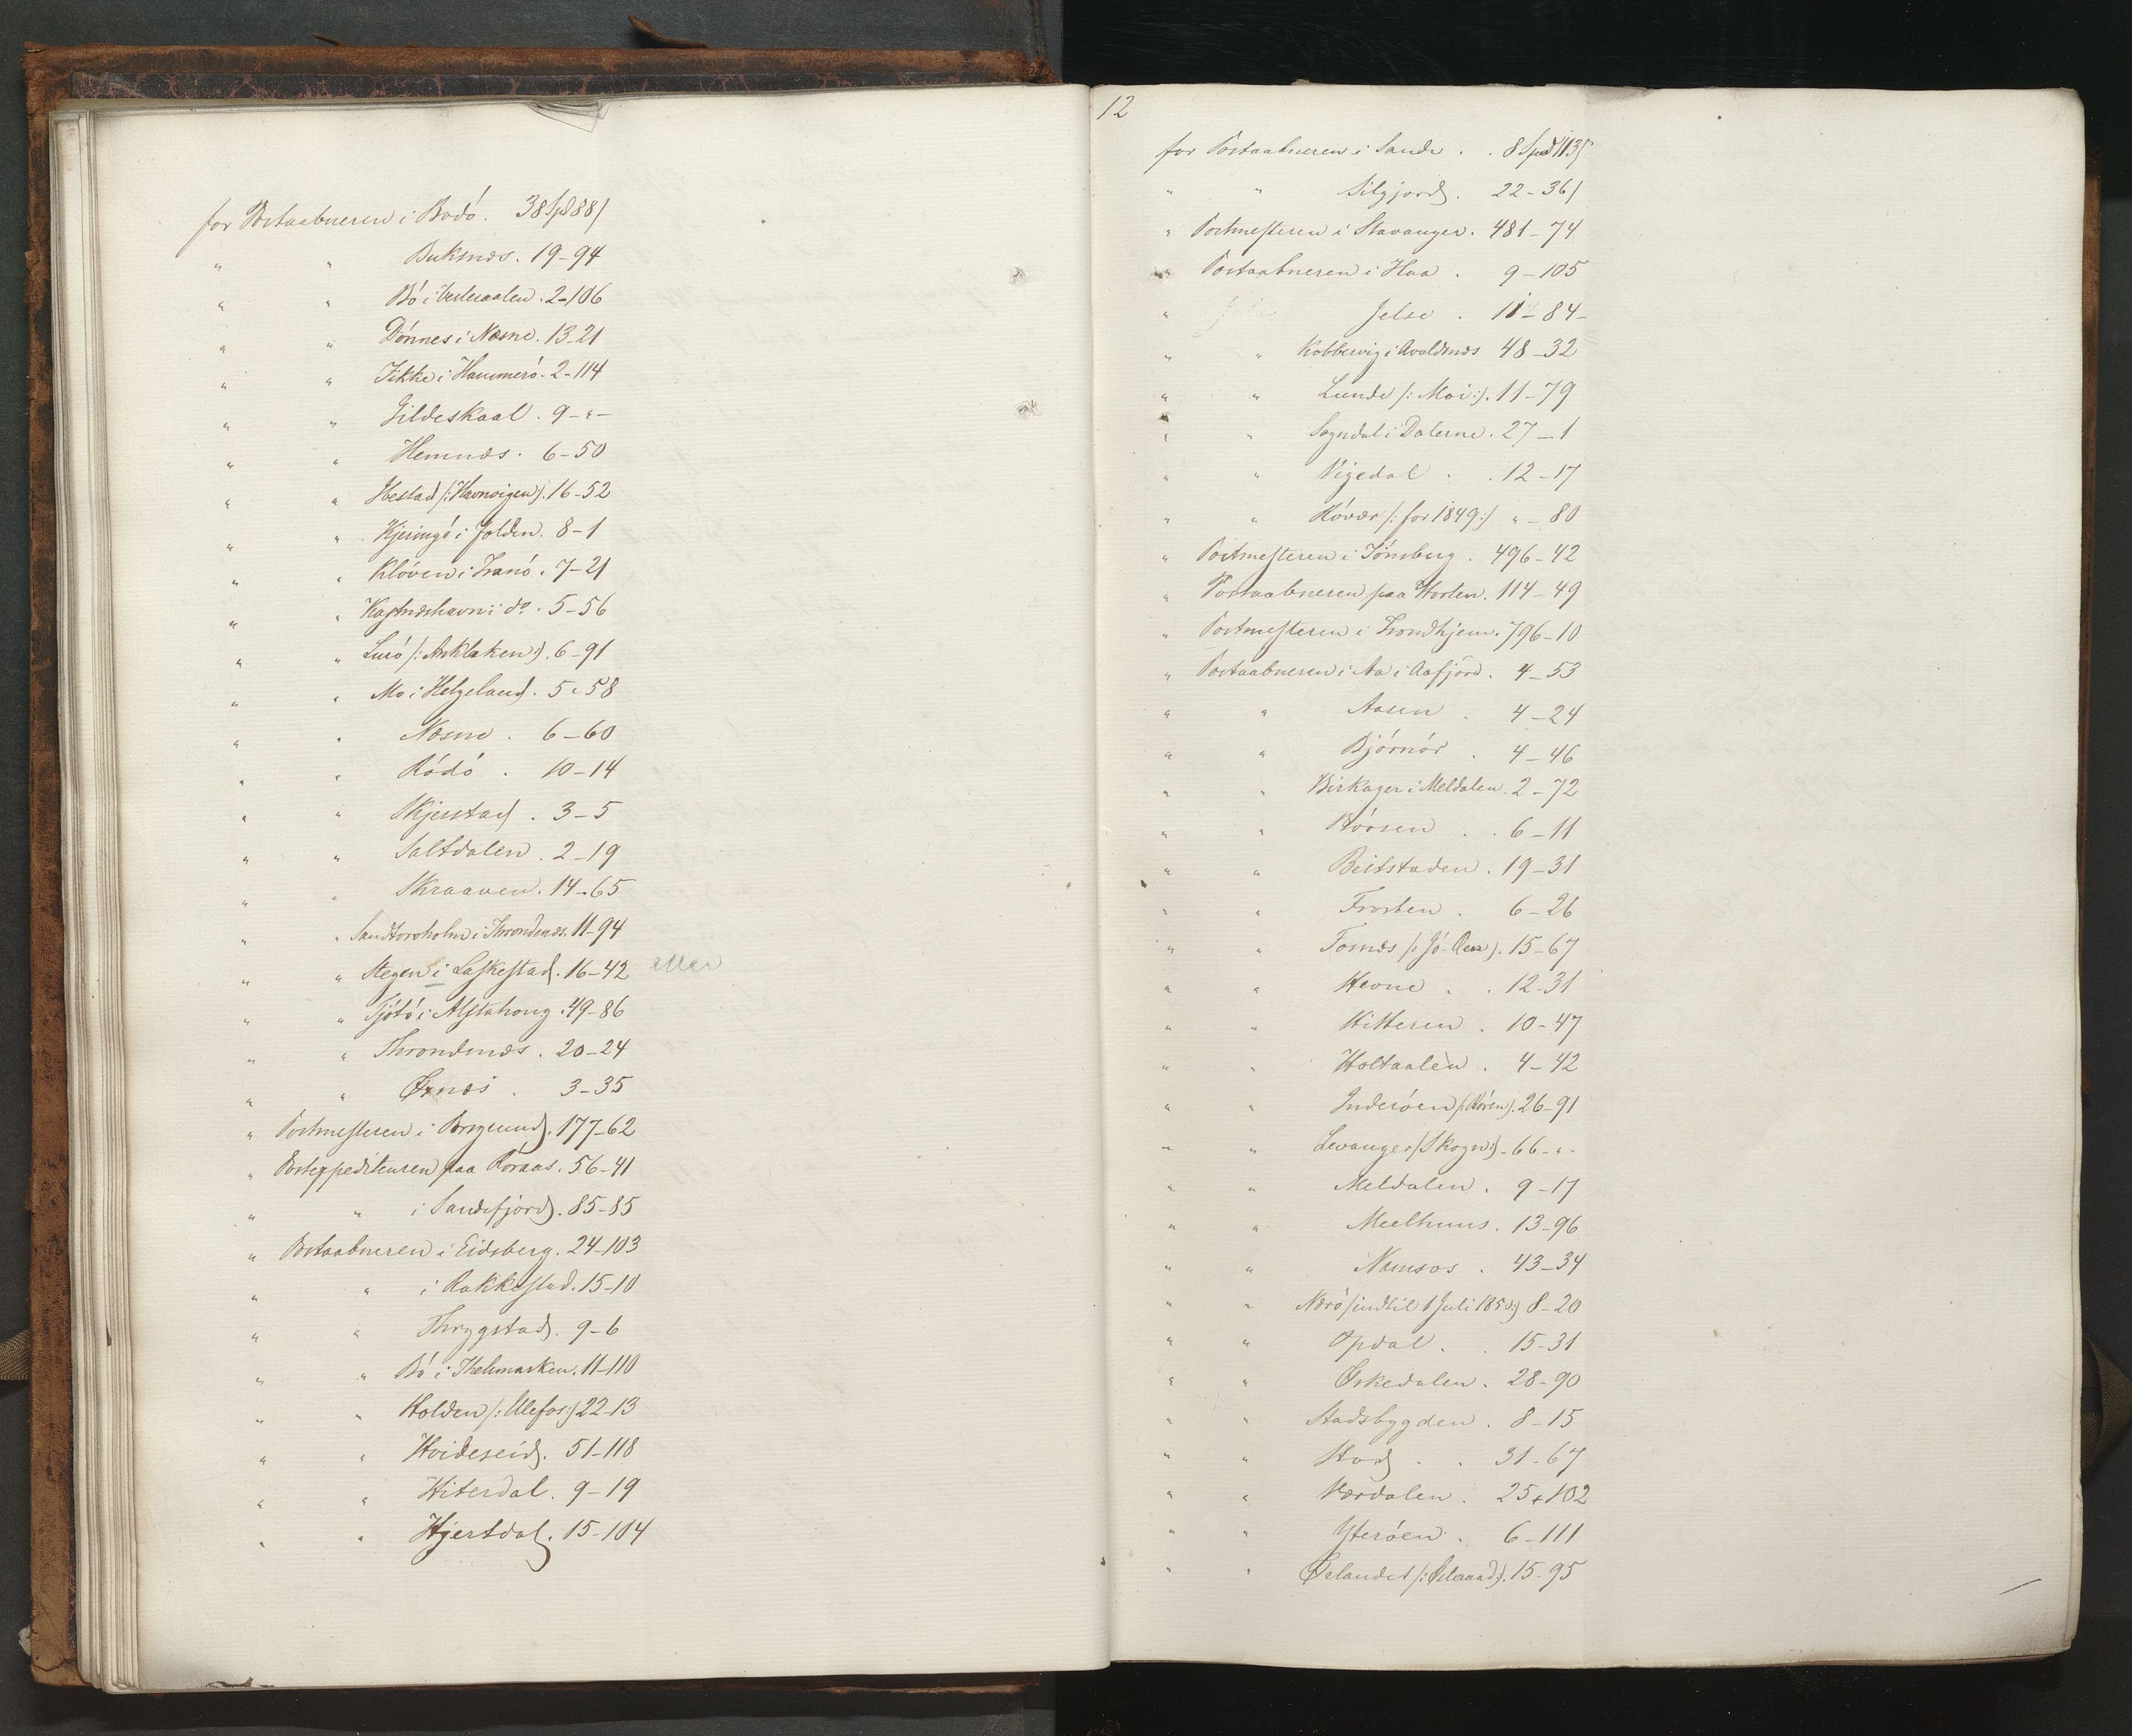 for Postaabneren i Bodó. 38 Spd 88 /
" " Buksnæs. 19-94
" " Bö i Vesteraalen. 2-106
" " Dönnes i Næsne. 13-21
" " Fikke i Hammeró. 2-114
" " Gildeskaal. 9-"-
" " Hemnæs. 6-50
" " Ibestad /:Havnvigen:/. 16-52
" " Kjeringó i Folden. 8-1
" " Klöven i Tranó. 7-21
" " Kastnæshavn i do. 5-56
" " Luró /:Arklaken:/. 6-91
" " Mo i Helgeland. 5-58
" " Næsne. 6-60
" " Ródó. 10-14
" " Skjerstad. 3-5
" " Saltdalen. 2-19
" " Skraaven. 14-65
" " Sandtorvholm i Throndenæs. 11-94
" " Stegen i Laskestad. 16-42 eller
" " Tjötó i Alstahoug. 49-86
" " Throndenæs. 20-24
" " Örnæs. 3-35
" Postmesteren i Porsgrund. 177-62
" Postexpediteuren paa Röraas. 56-41
" " i Sandefjord. 85-85
" Postaabneren i Eidsberg. 24-103
" " i Rakkestad. 15-10
" " Thrygstad. 9-6
" " Bó i Thelemarken. 11-110
" " Holden /:Ulefos:/ 22-13
" " Hvideseid. 51-118
" " Hiterdal. 9-19
" " Hjertdal. 15-104
12
for Postaabneren i Sande. . 8 Spd 113 /
" " Silgjord. 22-36 /
" Postmesteren i Stavanger. 481-74
" Postaabneren i Haa. 9-105
" Jelse. 11-84-
" " Kobbervig i Avaldsnæs 48-32
" " Lunde /:Moi:/. 11-79
" " Sogndal i Dalerne. 27-1
" " Vigedal. . 12-17
" " Róvær /:for 1849:/ "-80
" Postmesteren i Tönsberg. 496-42
" Postaabneren paa Horten. 114-49
" Postmesteren i Trondhjem. 796-10
" Postaabneren i Aa i Aafjord. 4-53
" " Aasen. 4-24
" " Björnór. 4-46
" " Birkager i Meldalen. 2-72
" " Börsen. . 6-11
" " Beitstaden. 19-31
" " Frosten. 6-26
" " Fosnæs /: Jö-Ren:/. 15-67
" " Hevne. . 12-31
" " Hitteren. 10-47
" " Holtaalen. 4-42
" " Inderöen /:Kören:/. 26-91
" " Levanger /:Skogn:/-66-"-
" " Meldalen. 9-17
" " Meelhuus. 13-96
" " Namsos. 43-34
" " Næró /:indtil 1 Juli 1850:/ 8-20
" " Opdal. . 15-31
" " Örkedalen. 28-90
" " Stadsbygden. 8-15
" " Stod. . 31-67
" " Værdalen. 25-102
" " Yteröen. 6-111
" " Örlandet 15-95